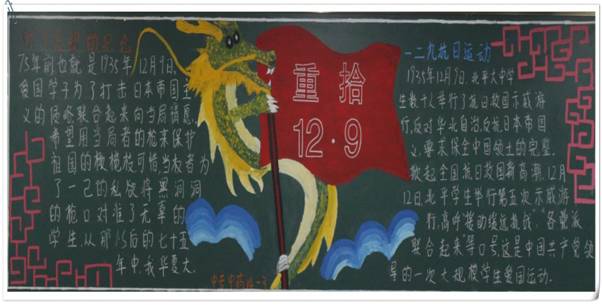 75年前也就是1935年12月9日,
爱国学子为了打击日本帝国主
义的侵略联合起来向当局请愿
希望用当局者的枪来保护
祖国的
可惜当权者为
了一己的私欲将黑洞洞
的枪口对准了无辜的
学生从那以后的七十五
年中,我华夏大
重拾
12·9
一二九抗日运动
1935年12月9日,北平大中学
生数千人举行了抗日救国示威游
行,反对华北自治,反抗日本帝国
义,要求保全中国领土的完整
掀起全国抗日救国新高潮,12月
12日,北平学生举行第五次示威游
行,高呼
各党派
联合起来等口号,这是中国共产党领
导的一次大规模学生爱国运动.